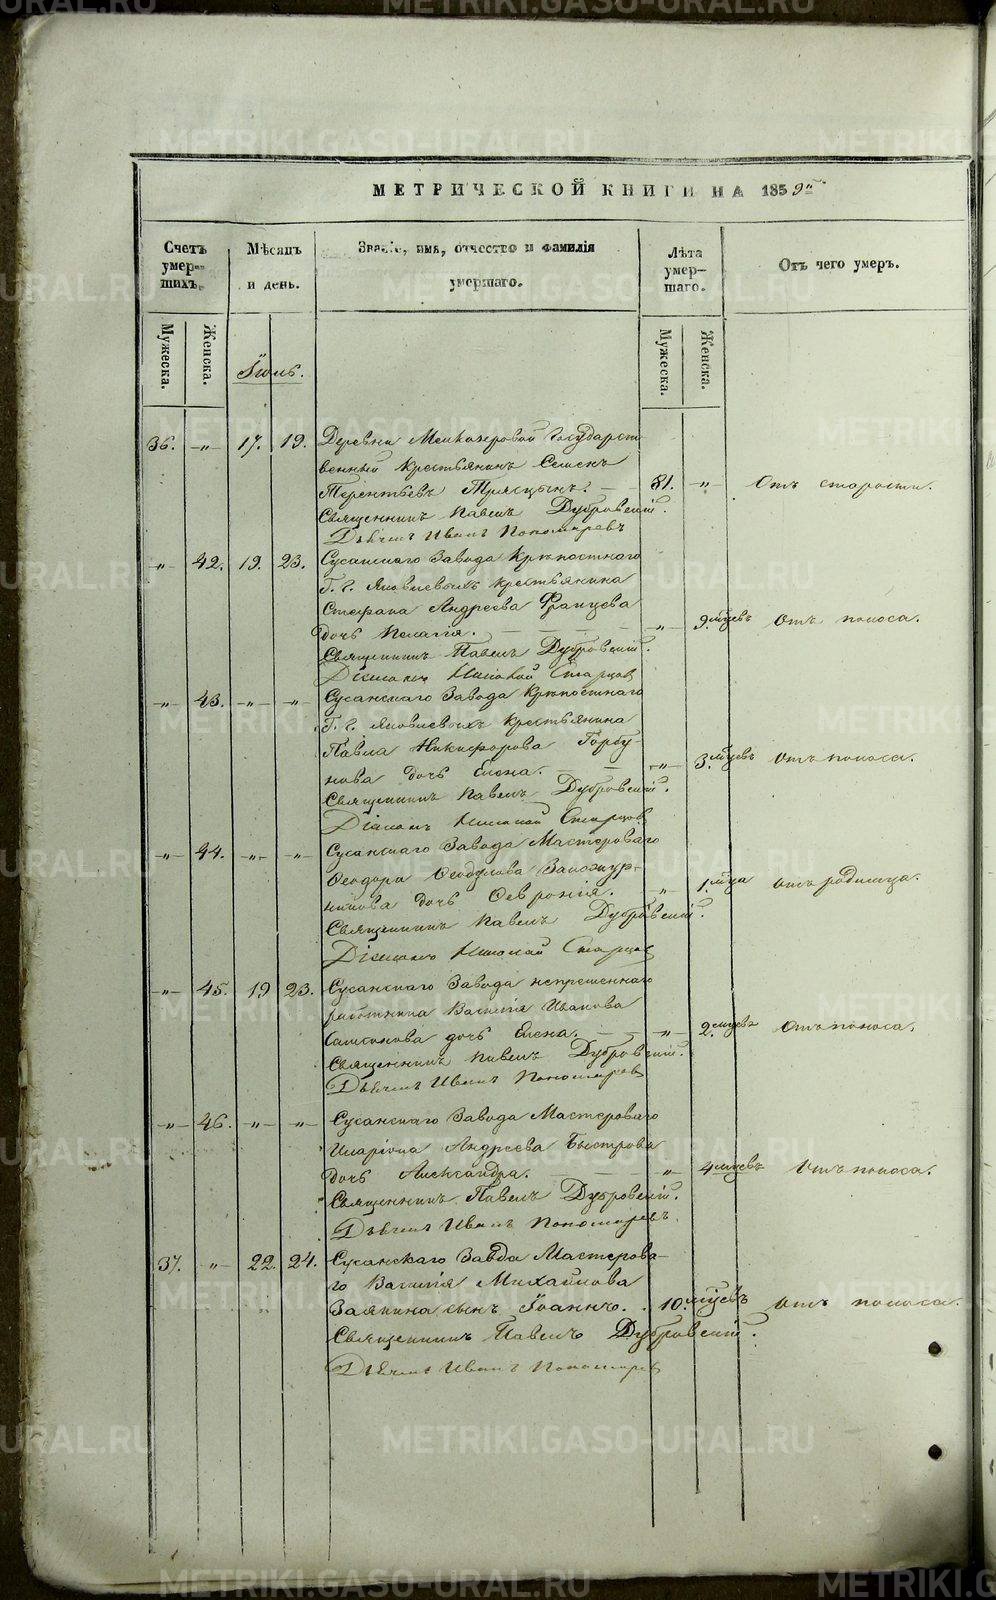 МЕТРИЧЕСКОЙ КНИГИ НА 1859
Счетъ умершихъ.
Мѣсяцъ и день.
Званіе, имя, отчество и фамилія умершаго.
Лѣта умершаго.
Отъ чего умеръ.
Мужеска.
Женска.
Мужеска.
Женска.
Іюль.
36. — „ — 17. 19. Деревни Государст-
венный Крестьянинъ Семенъ
Терентьевъ Трясцынъ. — 81. „ Отъ старости.
Священникъ Павелъ Дубровскій.
Дьячекъ Иванъ Пономаревъ
— „ — 42. 19. 23. Сусанскаго Завода Крѣпостнаго
Г. г. Яковлевыхъ крестьянина
Стефана Андреева
дочь Пелагія. — „ — 9. мцевъ Отъ поноса.
Священникъ Павелъ Дубровскій.
Діаконъ Николай Старцов
— „ — 43. — „ — „ — Сусанскаго Завода Крѣпостнаго
Г. г. Яковлевыхъ крестьянина
Павла Никифорова Горбу-
нова дочь Елена. — „ — 3. мцевъ Отъ поноса.
Священникъ Павелъ Дубровскій.
Діаконъ Николай Старцов
— „ — 44. — „ — „ — Сусанскаго Завода Мастероваго
Ѳеодора
дочь Ѳевронія. — „ — 1. мца Отъ родимца.
Священникъ Павелъ Дубровскій.
Діаконъ Николай Старцов
— „ — 45. 19 23. Сусанскаго Завода непременнаго
работника Василія Иванова
Самсонова дочь Елена. — „ — 2. мцевъ Отъ поноса.
Священникъ Павелъ Дубровскій.
Дьячекъ Иванъ Пономарев
— „ — 46. — „ — „ — Сусанскаго Завода Мастероваго
Иларіона Андреева Быстрова
дочь Александра. — „ — 4 мцевъ Отъ поноса.
Священникъ Павелъ Дубровскій.
Дьячекъ Иванъ Пономаревъ.
37. — „ — 22. 24. Сусанскаго Завода Мастерова-
го Василія Михайлова
Заякина сынъ Іоаннъ. 10. мцевъ Отъ поноса.
Священникъ Павелъ Дубровскій.
Дьячекъ Иванъ Пономарев
METRIKI.GASO-URAL.RU